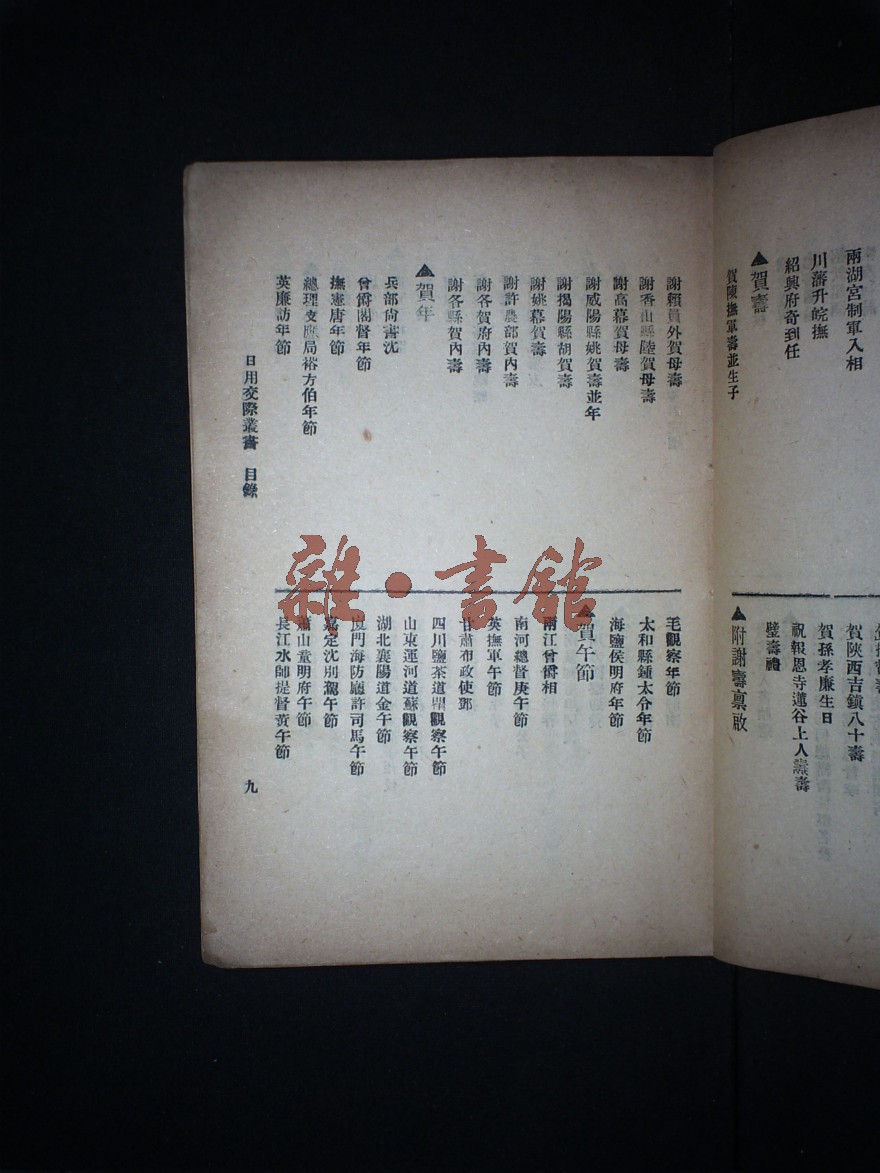 兩湖宮制軍入相
川藩升皖撫
紹興府奇到任
▲賀壽
賀陳撫軍壽並生子
賀陝西吉鎮八十壽
賀孫孝廉生日
祝報恩寺蓮谷上人壽
璧壽禮
▲附謝壽稟啟
謝賴員外賀母壽
謝香山縣陸賀母壽
謝高幕賀母壽
謝咸陽縣姚賀壽並年
謝揭陽縣胡賀壽
謝姚幕賀壽
謝許農部賀內壽
謝各賀府內壽
謝各縣賀內壽
▲賀年
兵部尚書沈
曾爵閣督年節
撫憲唐年節
總理支應局裕方伯年節
英廉訪年節
毛觀察年節
太和縣鍾太令年節
海鹽侯明府年節
▲賀午節
兩江曾爵相
南河總督庚午節
英撫軍午節
甘肅布政使鄧
四川鹽茶道觀察午節
山東運河道蘇觀察午節
湖北襄陽道金午節
廈門海防廳許司馬午節
嘉定沈別駕午節
蕭山童明府午節
長江水師提督黃午節
日用交際叢書 目錄
九
雜·書館